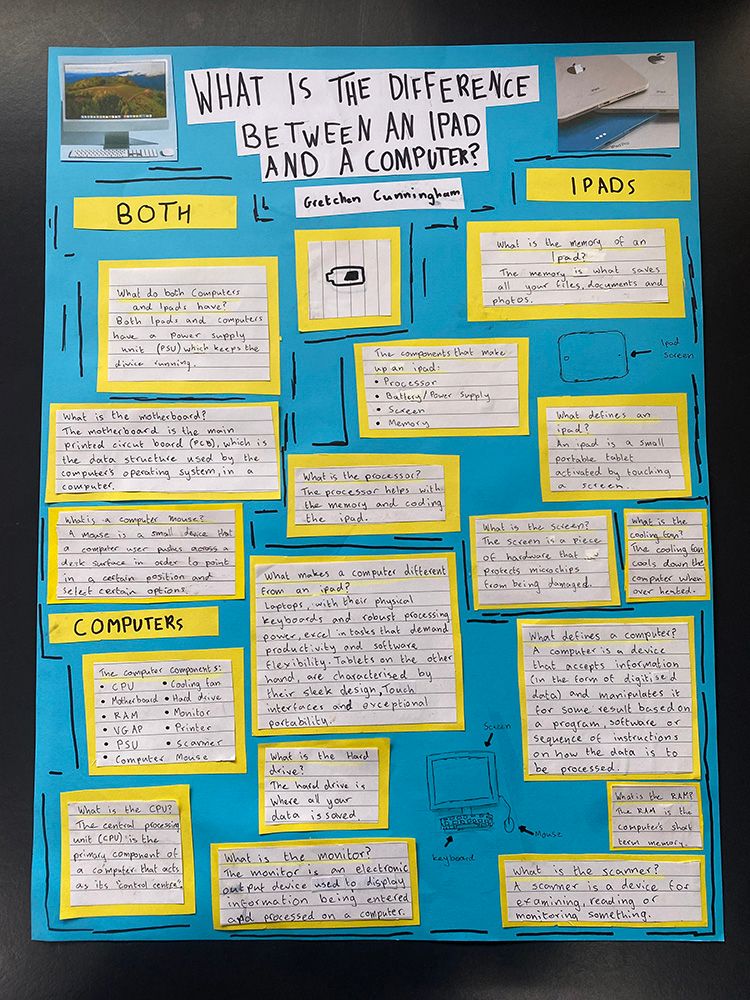 WHAT IS THE DIFFERENCE
BETWEEN AN IPAD
AND A COMPUTER?
Gretchen Cunningham
BOTH
IPADs
What do both Computers
and Ipads have?
Both Ipads and computers
have a power supply
unit (PSU) which keeps the
divice running.
What is the memory of an
Ipad?
The memory is what saves
all your files, documents and
photos.
Ipad
Screen
The components that make
up an ipad:
• Processor
• Battery/Power Supply
• Screen
• Memory
What is the motherboard?
The motherboard is the main
printed circut board (PCB), which is
the data structure used by the
computer's operating system, in a
computer.
What defines an
ipad?
An ipad is a small
portable tablet
activated by touching
a screen.
What is the processor?
The processor helps with
the memory and coding
the ipad.
What is a computer mouse?
A mouse is a small device that
a computer user pushes across a
desk surface in order to point
in a certain position and
select certain options.
What is the screen?
The screen is a piece
of hardware that
protects microchips
from being damaged.
What is the
cooling fan?
The cooling fan
cools down the
computer when
over heated.
COMPUTERs
What makes a computer different
from an ipad?
Laptops, with their physical
keyboards and robust processing
power, excel in tasks that demand
productivity and software
flexibility. Tablets on the other
hand, are characterised by
their sleek design, Touch
interfaces and exceptional
portability.
The computer components:
• CPU • Cooling fan
• Motherboard • Hard drive
• RAM • Monitor
• VGAP • Printer
• PSU • Scanner
• Computer Mouse
What defines a computer?
A computer is a device
that accepts information
(in the form of digitised
data) and manipulates it
for some result based on
a program, software or
sequence of instructions
on how the data is to
be processed.
What is the Hard
drive?
The hard drive is
where all your
data is saved
Screen
Mouse
keyboard
What is the RAM?
The RAM is the
computer's short
term memory.
What is the CPU?
The central processing
unit (CPU) is the
primary component of
a computer that acts
as its "control centre".
What is the monitor?
The monitor is an electronic
output device used to display
information being entered
and processed on a computer.
What is the scanner?
A scanner is a device for
examining, reading or
monitoring something.